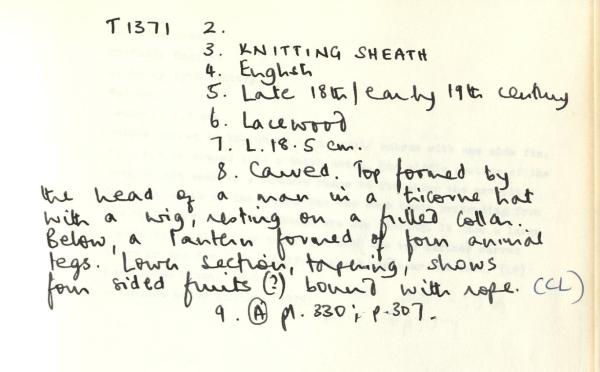 T1371 2.
3. KNITTING SHEATH
4. English
5. Late 18th/early 19th century
6. Lacewood
7. L. 18.5 cm.
8. Carved. Top formed by
the head of a man in a tricorne hat
with a wig, resting on a frilled collar.
Below, a lantern formed of four animal
legs. Lower section, tapering, shows
four sided fruits (?) bound with rope. (CL)
9. (A) pl. 330; p.307.